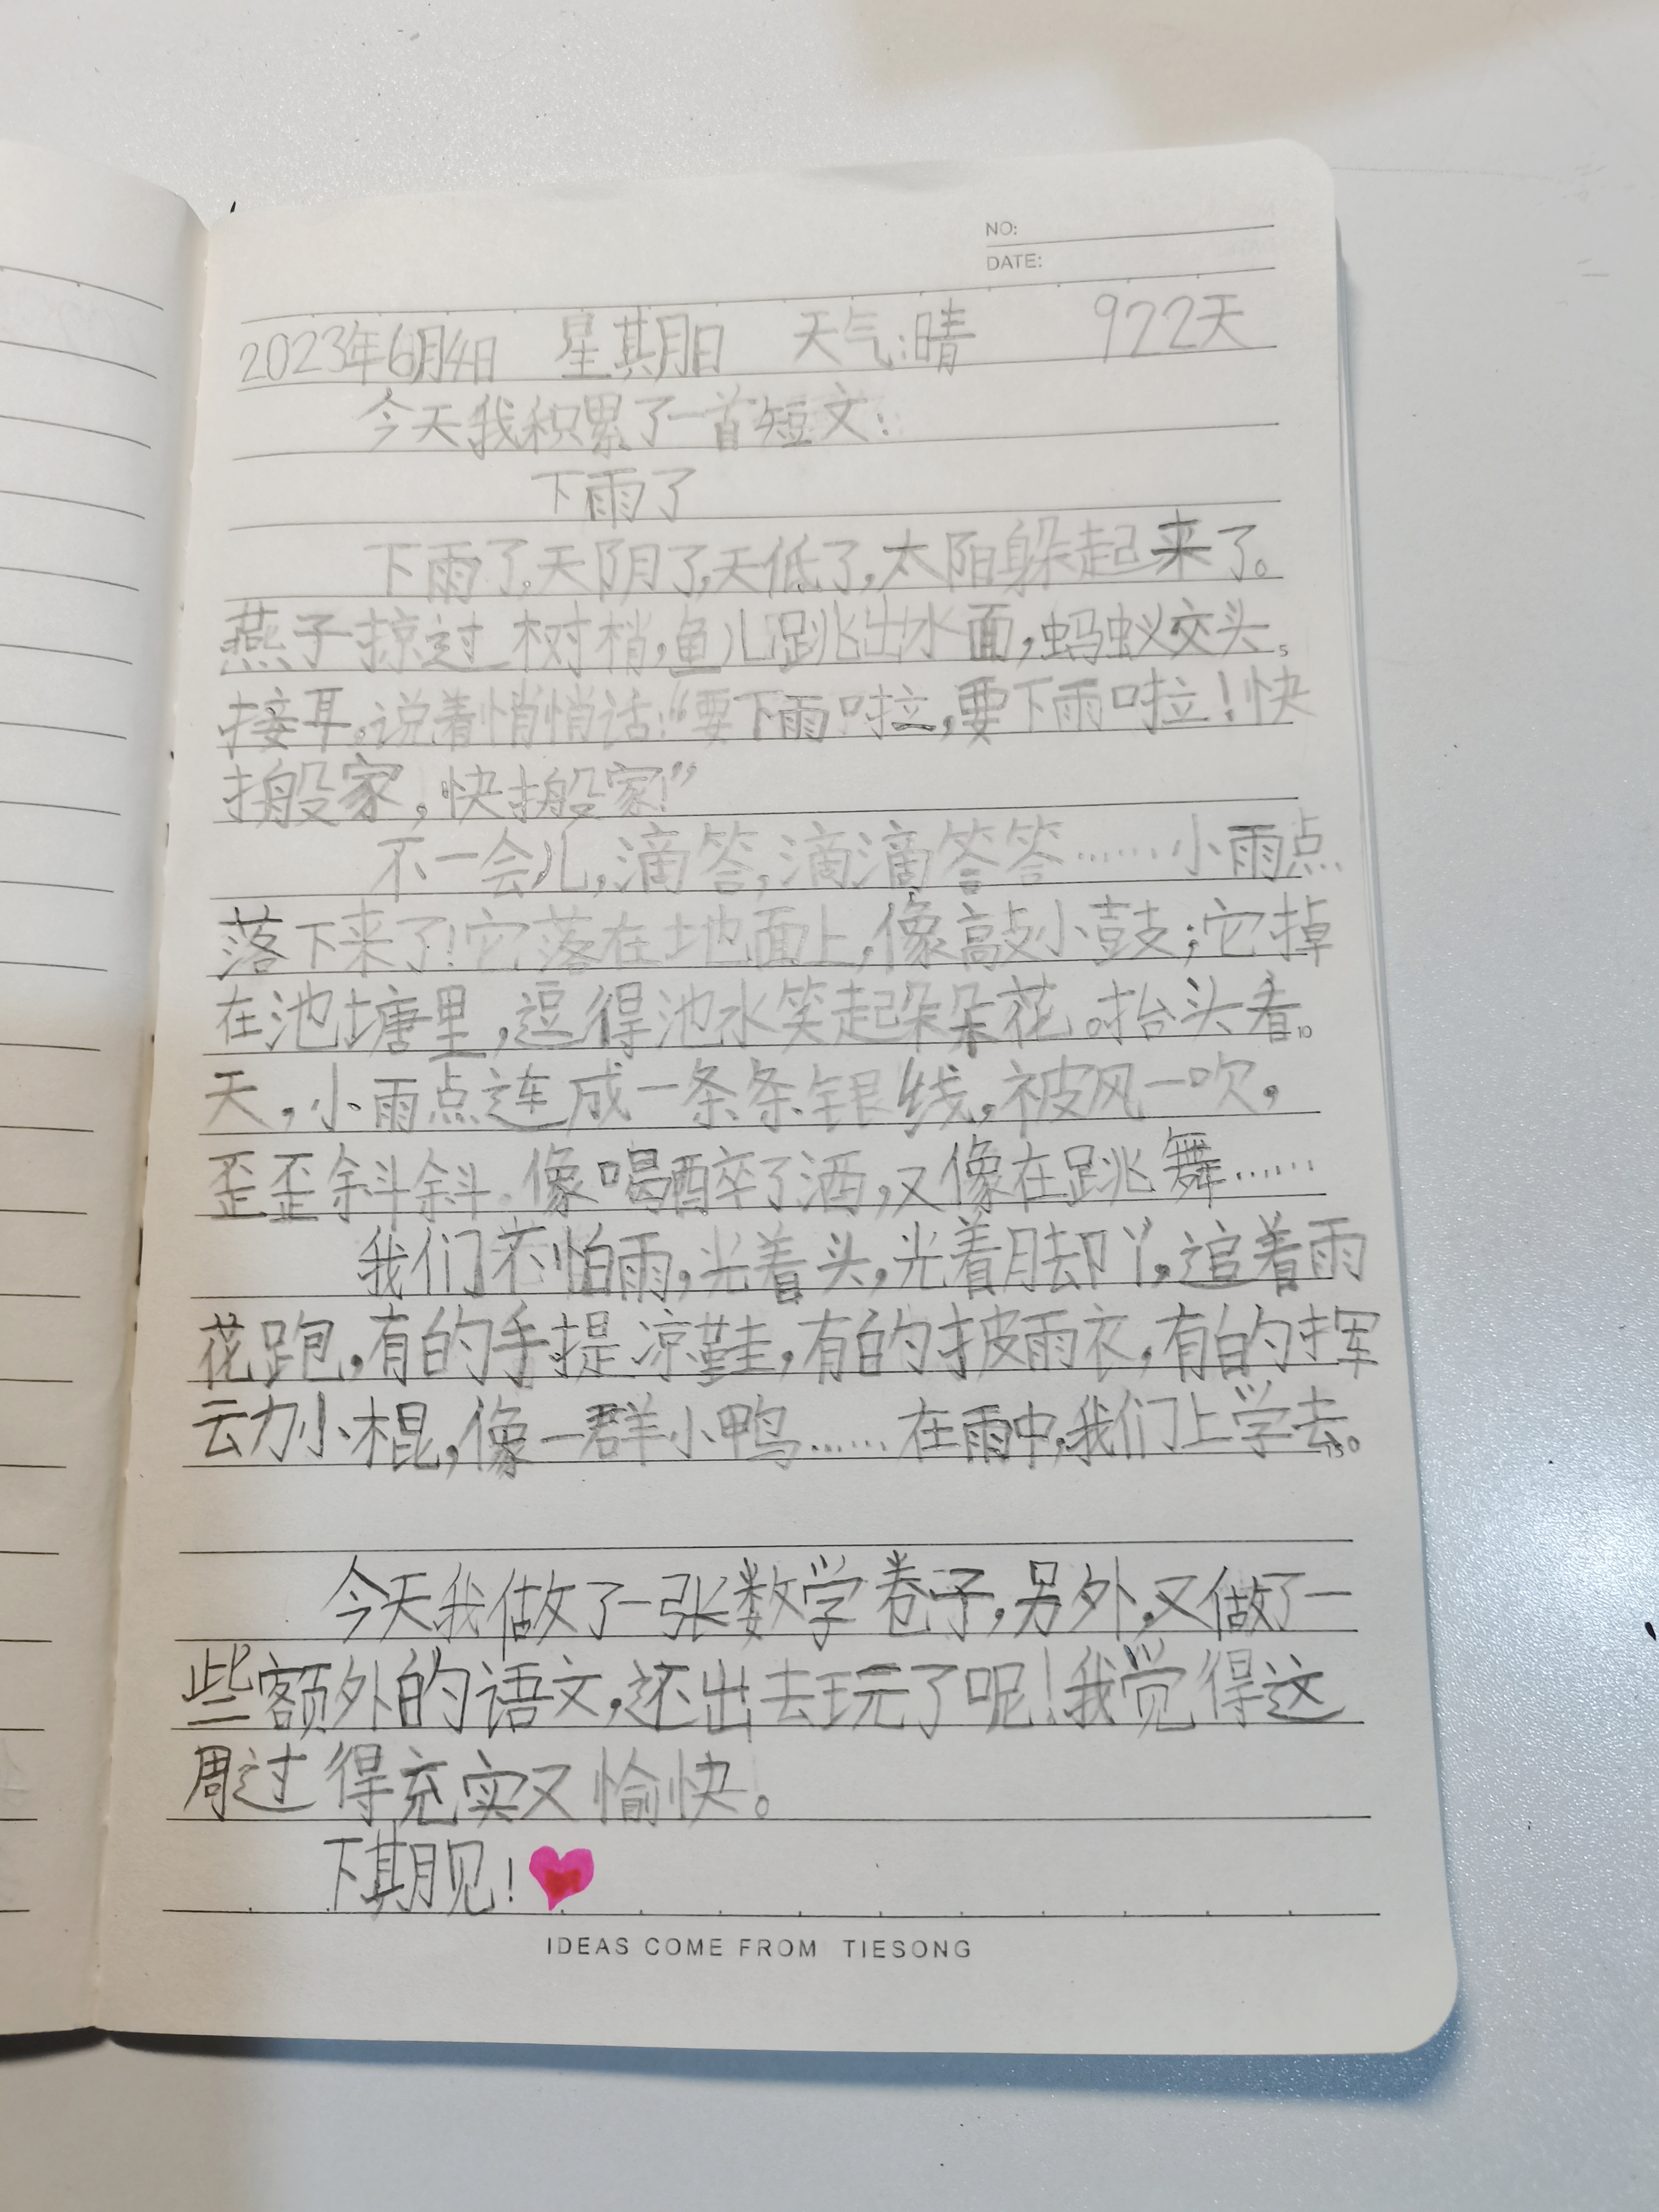 NO:
DATE:
2023年6月4日 星期日 天气:晴 922天
今天我积累了一首短文:
下雨了
下雨了,天阴了,天低了,太阳躲起来了。
燕子掠过树梢,鱼儿跳出水面,蚂蚁交头
5
接耳。说着悄悄话:“要下雨啦,要下雨啦!快
搬家,快搬家!”
不一会儿,滴答,滴滴答答……小雨点
落下来了!它落在地面上,像敲小鼓;它掉
在池塘里,逗得池水笑起朵朵花。抬头看
10
天,小雨点连成一条条银线,被风一吹,
歪歪斜斜。像喝醉了酒,又像在跳舞……
我们不怕雨,光着头,光着脚丫,追着雨
花跑,有的手提凉鞋,有的披雨衣,有的挥
动小棍,像一群小鸭……在雨中,我们上学去。
15
今天我做了一张数学卷子,另外,又做了一
些额外的语文,还出去玩了呢!我觉得这
周过得充实又愉快。
下期见!
IDEAS COME FROM TIESONG